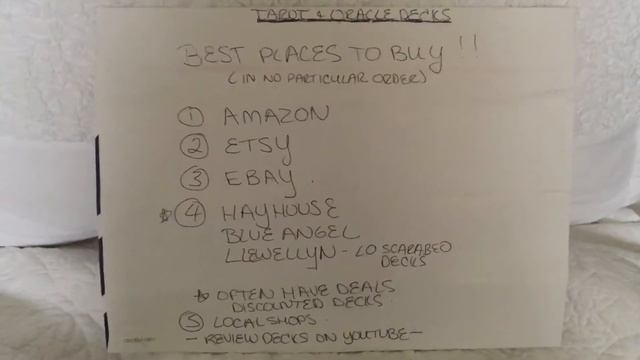 TAROT & ORACLE DECKS
BEST PLACES TO BUY!!
(IN NO PARTICULAR ORDER)
① AMAZON
② ETSY
③ EBAY.
☆ ④ HAYHOUSE
BLUE ANGEL
LLEWELLYN - LO SCARABEO
DECKS
☆ OFTEN HAVE DEALS
DISCOUNTED DECKS.
⑤ LOCAL SHOPS.
- REVIEW DECKS ON YOUTUBE -